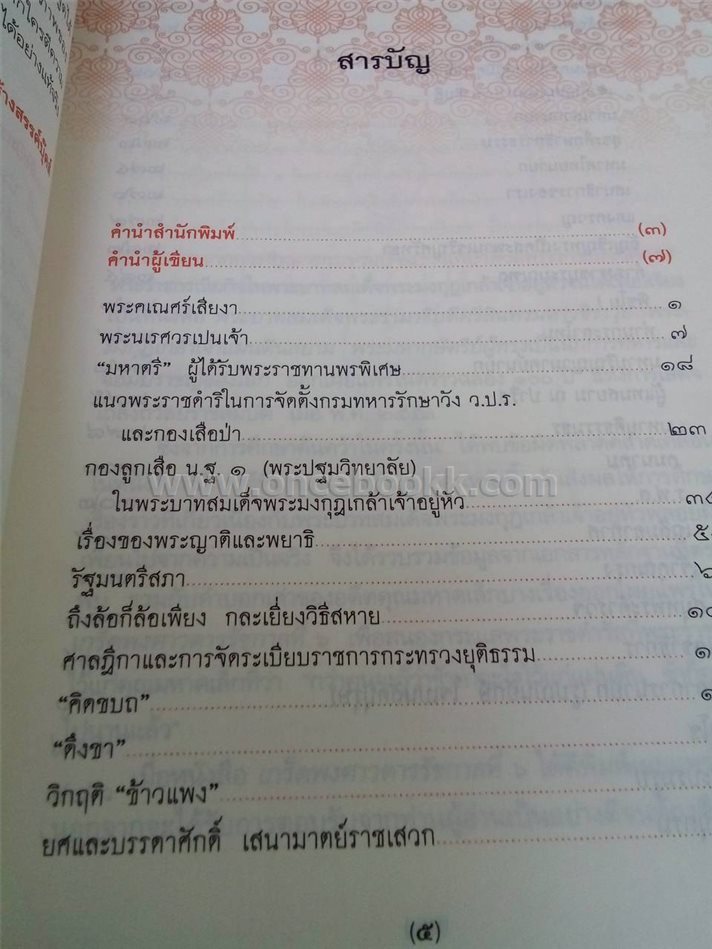 สารบัญ
คำนำสำนักพิมพ์ (๓)
คำนำผู้เขียน (๗)
พระคเณศร์เสียงา ๑
พระนเรศวรเปนเจ้า ๗
“มหาตรี” ผู้ได้รับพระราชทานพรพิเศษ ๑๘
แนวพระราชดำริในการจัดตั้งกรมทหารรักษาวัง ว.ป.ร.
และกองเสือป่า ๒๓
กองลูกเสือ น.ฐ. ๑ (พระปฐมวิทยาลัย)
www.oncebookk.com
ในพระบาทสมเด็จพระมงกุฎเกล้าเจ้าอยู่หัว
เรื่องของพระญาติและพยาธิ
รัฐมนตรีสภา
ถึงล้อก็ล้อเพียง กละเยี่ยงวิธีสหาย
ศาลฎีกาและการจัดระเบียบราชการกระทรวงยุติธรรม
“คิดขบถ”
“ดึงขา”
วิกฤติ “ข้าวแพง”
ยศและบรรดาศักดิ์ เสนามาตย์ราชเสวก
(๕)